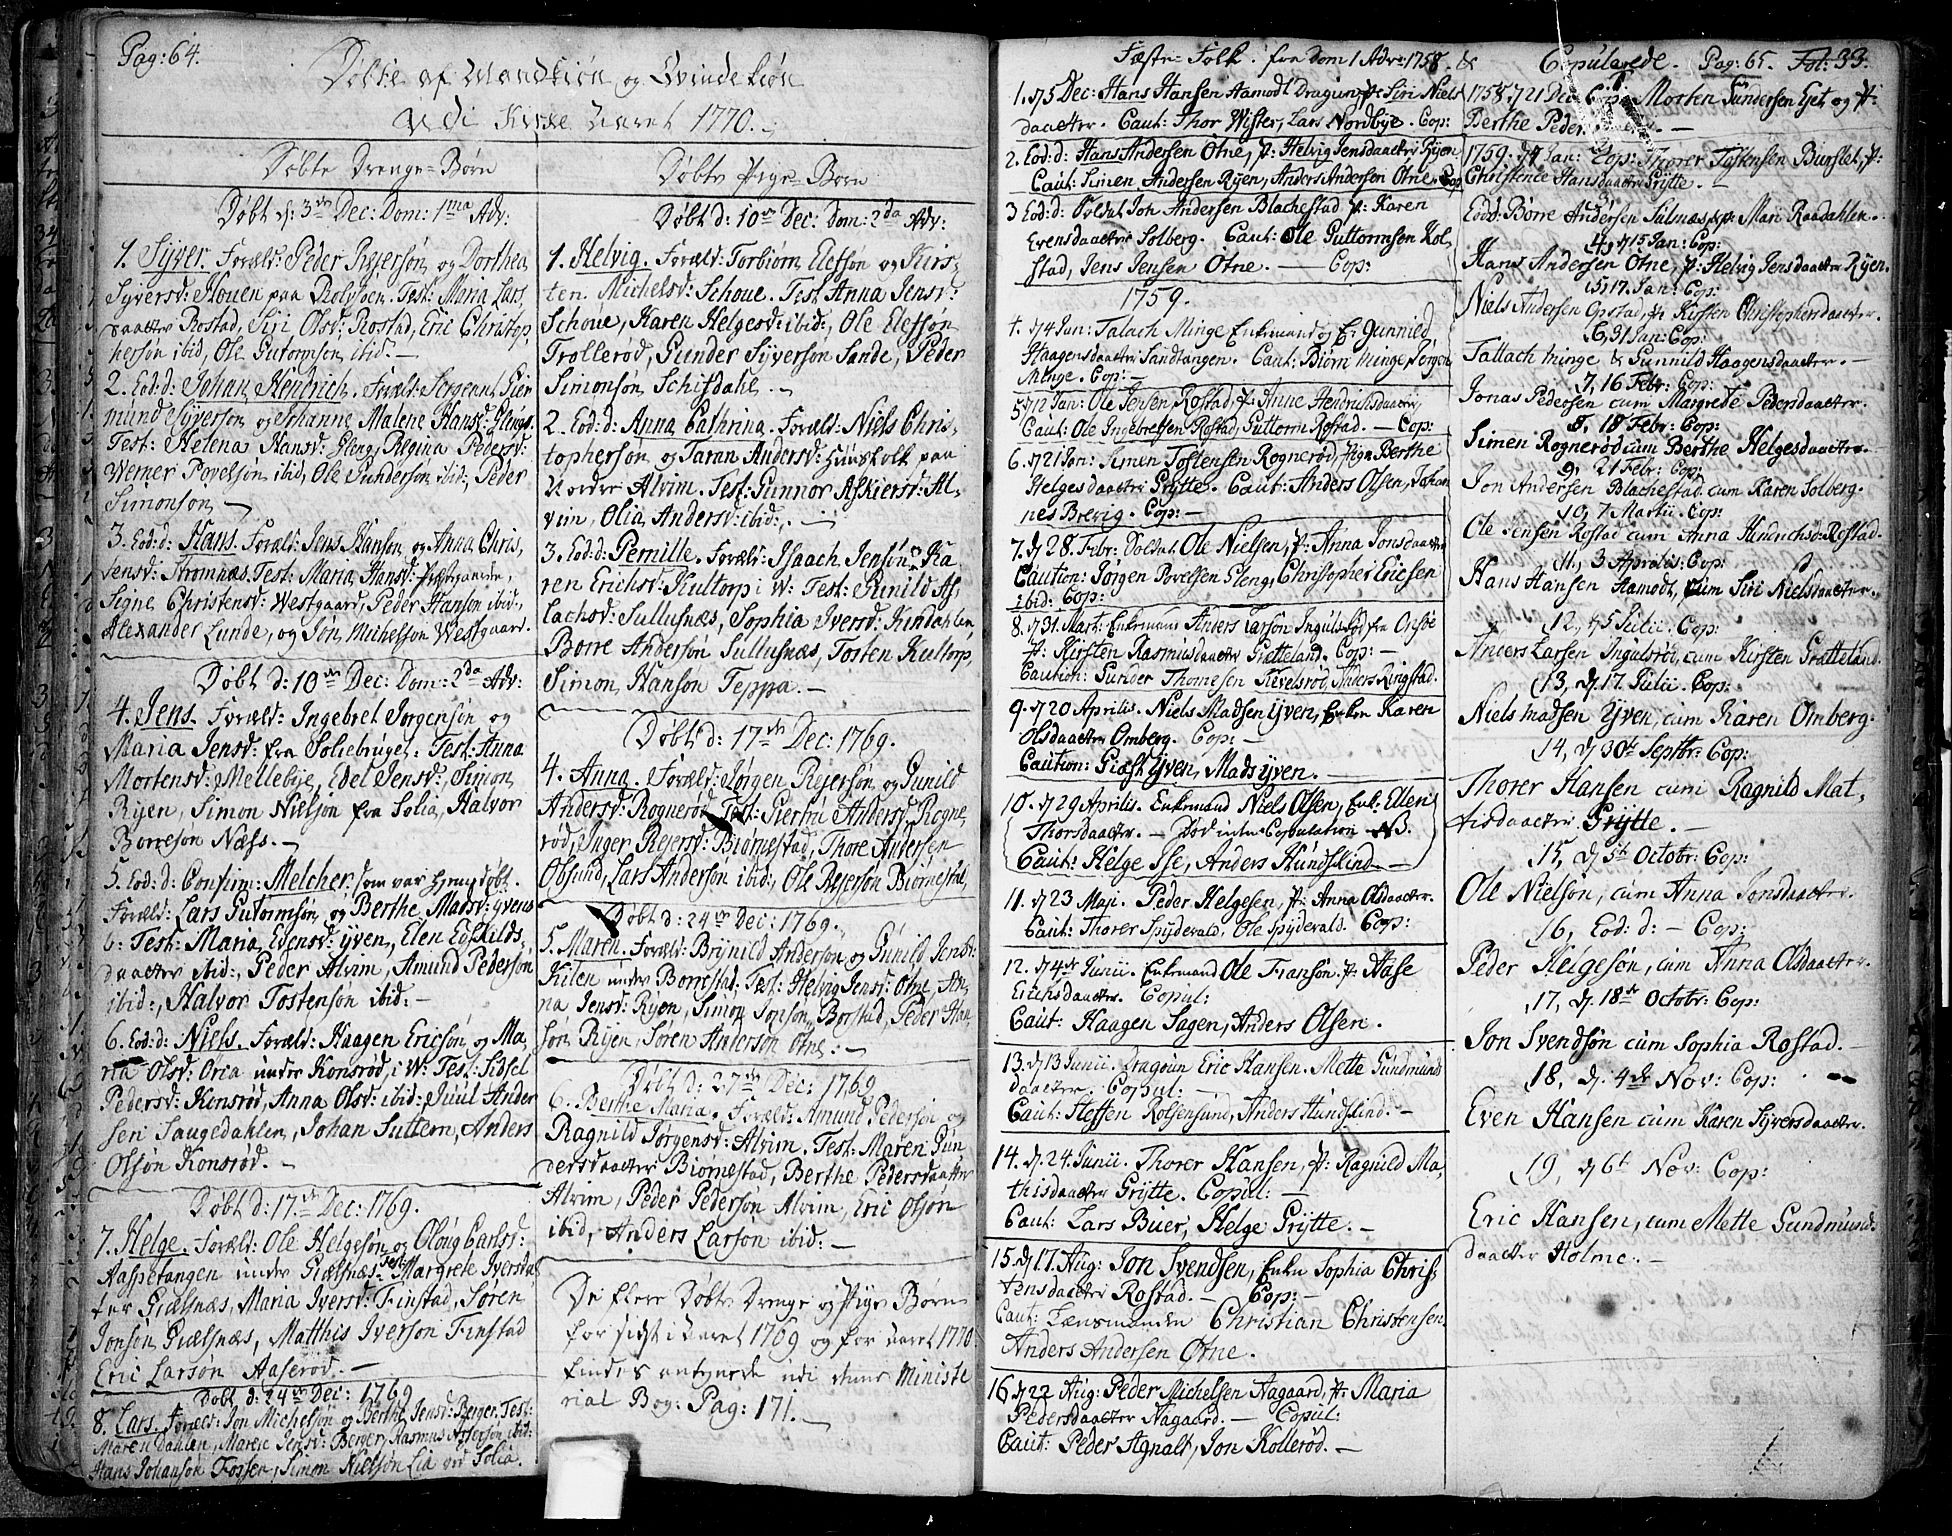 Pag: 64.
Døbte af Mandkiøn og Qvindekiøn
Udi Kirke Aaret 1770.
Døbte Drenge-Børn
Døbt d: 3de Dec: Dom: 1ma Adv:
1. Syver. Foræld: Peder Rejersøn og Dorthea
Syversd: Houen paa Test: Maria Lars,
daatter Rostad, Siri Olsd: Rostad, Eric Christop,
hersøn ibid, Ole Gutormsøn ibid. –
2. Eod: d: Johan Hendrich. Foræld: Sergeant Gier
mund Syversøn og Johanne Malene Hansd: Gleng.
Test: Helena Hansd: Gleng, Regina Pedersd:
Werner Povelsøn ibid, Ole Gundersøn ibid:, Peder
Simonsøn –
3. Eod: d: Hans. Foræld: Jens Hansøn og Anna Chris,
tensd: Stromnæs. Test: Maria Hansd:
Signe Christensd: Westgaard, Peder Hansøn ibid:,
Alexander Lunde, og Jøn Michelsøn Westgaard.
Døbt d: 10de Dec: Dom: 2da Adv:
4. Jens. Foræld: Ingebret Jørgensøn og
Maria Jensd: fra Soliebruget. Test: Anna
Mortensd: Mellebye, Edel Jensd: Simon
Ryen, Simon Nielsøn fra Solia, Halvor
Børresøn Næss. –
5. Eod: d: Confirm: Melcher. som var hjemedøbt.
Foræld: Lars Gutormsøn og Berthe Madsd: yvens
Test: Maria Evensd: yven, Elen Eskilds,
daatter ibid:, Peder Alvim, Amund Pedersøn
ibid:, Halvor Tostensøn ibid: –
6. Eod: d: Niels. Foræld: Haagen Ericsøn og Ma,
ria Olsd: Oria under Konsrød, i W: Test: Sidsel
Pedersd: Konsrød, Anna Olsd: ibid: Juul Ander
sen Saugedahlen, Johan Guttern, Anders
Olsøn Konsrød. –
Døbt d: 17de Dec: 1769.
7. Helge. Foræld: Ole Helgesøn og Oloug Carlsd:
Aaspetangen under Giælsnæs. Test: Margrete Iversda
ter Giælsnæs, Maria Iversd: Finstad, Søren
Jonsøn Giælsnæs, Matthis Iversøn Finstad
Eric Larsøn Aaserød. –
Døbt d: 24de Dec: 1769
8. Lars. Foræld: Jon Michelsøn og Berthe Jensd: Berger. Test:
Maren Dahlen, Maren Jensd: Berger, Rasmus Assersøn ibid:
Hans Johansøn Fossen, Simon Nielsøn Lia ved Solia.
Døbte Pige-Børn
Døbt d: 10de Dec: Dom: 2da Adv:
1. Helvig. Foræld: Torbiørn Elefsøn og Kirs,
ten Michelsd: Schoue. Test: Anna Jensd:
Schoue, Karen Helgesd: ibid:, Ole Elefsøn
Trollerød, Gunder Syversøn Sande, Peder
Simonsøn Schisdahl. –
2. Eod: d: Anna Cathrina. Foræld: Niels Chris,
tophersøn og Taran Andersd: Huusfolk paa
Nordre Alvim. Test: Gunnor Askiersd: Al,
vim, Olia Andersd: ibid:,
3. Eod: d: Pernille. Foræld: Isaach Jensøn og Ka
ren Erichsd: Kultorp i W: Test: Gunild As,
lachsd: Sullusnæs, Sophia Iversd: Kindahlen,
Børre Andersøn Sullusnæs, Tosten Kultorp,
Simon Hansøn Teppa. –
Døbt d: 17de Dec: 1769.
4. Anna. Foræld: Jørgen Rejersøn og Gunild
Andersd: Rognerød. Test: Andersd: Rogne,
rød, Inger Rejersd: Biørnestad, Thore Andersen
Obsund, Lars Andersøn ibid:, Ole Rejersøn Biørnestad,
Døbt d: 24de Dec: 1769.
5. Maren. Foræld: Brynild Andersøn og Gunild Jensd:
Kilen under Borrestad. Test: Helvig Jensd: Otne, An,
na Jensd: Ryen, Simon Jonsøn Borstad, Peder Han
søn Ryen, Søren Andersøn Otne. –
Døbt d: 27de Dec: 1769
6. Berthe Maria. Foræld: Amund Pedersøn og
Ragnild Jørgensd: Alvim. Test: Maren Gun
dersdaatter Biørnestad, Berthe Pedersdaatter
Alvim, Peder Pedersøn Alvim, Eric Olsøn
ibid, Anders Larsøn ibid: –
De flere Døbte Drenge og Pige Børn
for sidst i Aaret 1769 og for Aaret 1770
findes antegnede udi denne Ministe
rial Bog: Pag: 171. –
Fæste-Folk. fra Dom 1 Adv: 1758. &
1. d 5 Dec: Hans Hansen Aamodt Dragun, p: Siri Niels
daatter. Caut: Thor Wister, Lars Nordbye. Cop:
2. Eod: d: Hans Andersen Otne, p: Helvig Jensdaatter Ryen
Caut: Simen Andersen Ryen, Anders Andersen Otne. Cop
3 Eod: d: Soldat Jon Andersen Blachestad p: Karen
Evensdaatter Solberg. Caut: Ole Guttormsøn Rol
stad, Jens Jensen Otne. – Cop:
1759.
4. d 4 Jan: Talach Minge Enkemand og E: Gunnild
Haagensdaatter Sandtangen. Caut: Biørn Minge, Jørgen
Minge. Cop: –
5. d 12 Jan: Ole Jensen Rostad, p: Anne Hendrichsdaatter
Caut: Ole Ingebretsen Rostad, Guttorm Rostad. – Cop:
6. d 21 Jan: Simen Tostensen Rognerød, Pige Berthe
Helgesdaatter Grytte. Caut: Anders Olsen, Johan
nes Brevig. Cop: –
7. d 28. Febr: Soldat Ole Nielsen, p: Anna Jonsdaatter
Caution: Jørgen Povelsen Gleng, Christopher Ericsen
ibid: Cop:
8. d 31. Mart: Enkemand Anders Larsøn Ingulsrød fra Onsøe
p: Kirsten Rasmusdaatter Grætteland. Cop: –
Caution: Gunder Thomesen Tuvelsrød, Anders Ringstad.
9. d 20 Aprilis. Niels Madsen yven, Enken Karen
Olsdaatter Omberg. Cop: –
Caution: Giæst yven, Mads yven. –
10. d 29 Aprilis. Enkemand Niels Olsen, Enk: Ellen
Thorsdaatter. – Død inden Copulation – NB.
Caut: Helge Ise, Anders Hundskind –
11. d 23 Maji. Peder Helgesen, p: Anna Olsdaatter.
Caut: Thorer Spydevald, Ole Spydevald. Cop:
12. d 4de Junii. Enkemand Ole Fransøn. p: Aase
Erichsdaatter. Copul:
Caut: Haagen Hagen, Anders Olsen.
13. d 13 Junii. Dragoun Eric Hansen. Mette Gundmunds
daatter. Copul: –
Caut: Steffen Rolfsensund, Anders Hundskind. –
14. d. 24. Junii. Thorer Hansen, p: Ragnild Ma,
thisdaatter Grytte. Copul: –
Caut: Lars Buer, Helge Grytte. –
15. d 17. Aug: Jon Svendsen, Enke Sophia Chris,
tensdaatter Rostad. – Cop: –
Caut: Lænsmanden Christian Christensen.
Anders Andersen Otne.
16. d 22 Aug: Peder Michelsen Aagaard, p: Maria
Pedersdaatter Aagaard. – Copul:
Caut: Peder Agnalt, Jon Kollerød. –
Copulerede. Pag: 65. Fol: 33.
1758 d 21 Dec: Cop: Morten Gundersen Eget og p:
Berthe Peder –
1759. d 4 Jan: Cop: Thorer Tostensen Burstet, p:
Christence Hansdaatter Grytte. –
Eod d: Børre Andersen Sulsnæs, p: Mari Raadahlen.
4, d 15 Jan: Cop:
Hans Andersen Otne, p: Helvig Jensdaatter Ryen.
5, 17. Jan: Cop:
Niels Andersen Opstad, p: Kirsten Christophersdaatter.
6, 31 Jan: Cop:
Tallach Minge & Gunnild Haagensdaatter. –
7, 16 Febr: Cop:
Jonas Pedersen cum Margrete Pedersdaatter.
8, 18 Febr: Cop:
Simen Rognerød cum Berthe Helgesdaatter.
9, 21 Febr: Cop:
Jon Andersen Blachestad cum Karen Solberg.
10, 7 Martii. Cop:
Ole Jensen Rostad cum Anna Hindrichsd: Rostad.
11, 3 Aprilis: Cop:
Hans Hansen Aamodt, cum Siri Nielsdaatter.
12, d 5 Julii. Cop:
Anders Larsen Ingulsrød, cum Kirsten Gratteland.
13, d. 17. Julii. Cop:
Niels Madsen Yven, cum Karen Omberg.
14, d 30te Septbr: Cop:
Thorer Hansen cum Ragnild Mat,
tisdaatter Grytte. –
15, d 5te Octobr: Cop:
Ole Nielsøn, cum Anna Jonsdaatter.
16, Eod: d: – Cop:
Peder Helgesøn, cum Anna Olsdaatter.
17, d. 18de Octobr: Cop:
Jon Svendsøn cum Sophia Rostad. –
18, d. 4de Nov: Cop:
Even Hansen cum Karen Syversdaatter.
19, d 6t Nov: Cop:
Eric Hansen, cum Mette Gundmunds
daatter Holme. –